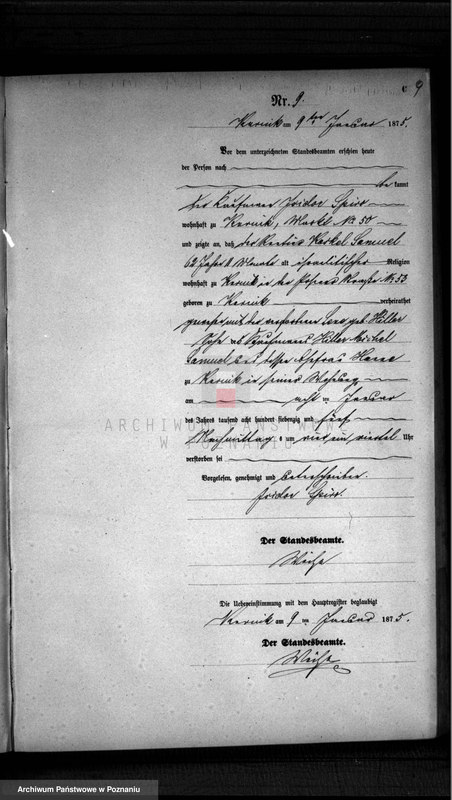 9
Nr. 9.
Kurnik am 9ten Januar 1875.
Vor dem unterzeichneten Standesbeamten erschien heute
der Person nach
bekannt
der Kaufmann Isidor Spiro
wohnhaft zu Kurnik, Markt No 50
und zeigte an, daß der Samuel
62 Jahre Monate alt israelitischer Religion
wohnhaft zu Kurnik in der Posener Straße No 53
geboren zu Kurnik verheirathet
gewesen mit der verstorbenen geb. Hiller
Sohn des Kaufmanns Hiller
Samuel und dessen Ehefrau
zu Kurnik in seiner Wohnung
am acht ten Januar
des Jahres tausend acht hundert siebenzig und fünf
Nachmittags um ein viertel Uhr
verstorben sei
Vorgelesen, genehmigt und unterschrieben.
Isidor Spiro.
Der Standesbeamte.
Die Uebereinstimmung mit dem Hauptregister beglaubigt
Kurnik am 9 ten Januar 1875.
Der Standesbeamte.
ARCHIWUM PAŃSTWOWE
W POZNANIU
Archiwum Państwowe w Poznaniu